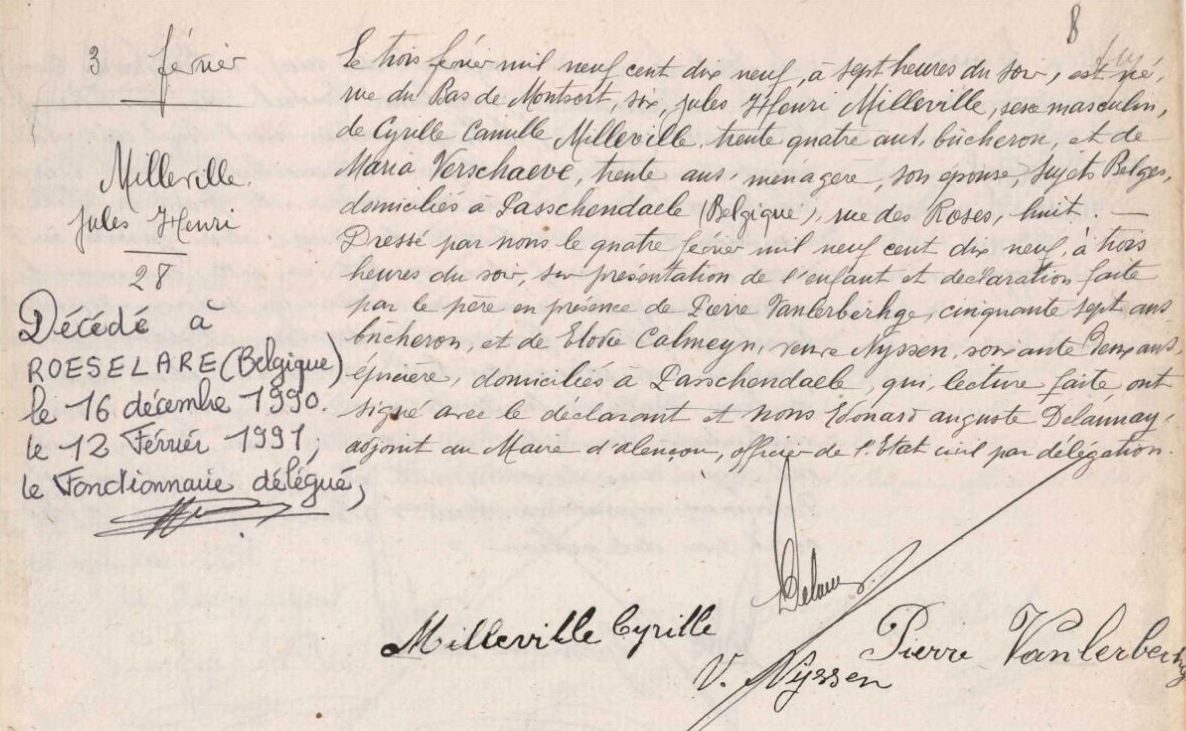 8
3 février
Milleville
Jules Henri
28
Décédé à
ROESELARE (Belgique)
le 16 décembre 1990.
le 12 Février 1991,
le Fonctionnaire délégué,
Le trois février mil neuf cent dix neuf, à sept heures du soir, est né,
rue du Pas de Montsort, six, Jules Henri Milleville, sexe masculin,
de Cyrille Camille Milleville, trente quatre ans, bûcheron, et de
Maria Verschaeve, trente ans, ménagère, son épouse, sujets Belges,
domiciliés à Passchendaele (Belgique), rue des Roses, huit. —
Dressé par nous le quatre février mil neuf cent dix neuf, à trois
heures du soir, sur présentation de l'enfant et déclaration faite
par le père en présence de Pierre Vanlerberhge, cinquante sept ans
bûcheron, et de Elodie Calmeyn, veuve Nyssen, soixante deux ans,
épicière, domiciliés à Passchendaele, qui, lecture faite, ont
signé avec le déclarant et nous Edouard Auguste Delaunay,
adjoint au Maire d'Alençon, officier de l'Etat civil par délégation.
Milleville Cyrille
V. Nyssen
Pierre Vanlerberhg